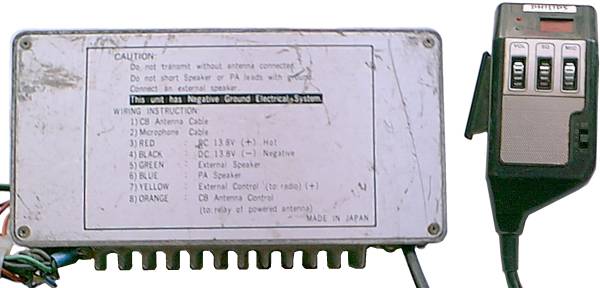 CAUTION:
Do not transmit without antenna connected.
Do not short Speaker or PA leads with ground.
Connect an external speaker.
This unit has Negative Ground Electrical System.
WIRING INSTRUCTION
1) CB Antenna Cable
2) Microphone Cable
3) RED : DC 13.8V (+) Hot
4) BLACK : DC 13.8V (-) Negative
5) GREEN : External Speaker
6) BLUE : PA Speaker
7) YELLOW : External Control (to radio) (+)
8) ORANGE : CB Antenna Control
(to relay of powered antenna)
MADE IN JAPAN
PHILIPS
VOL SQ MIC